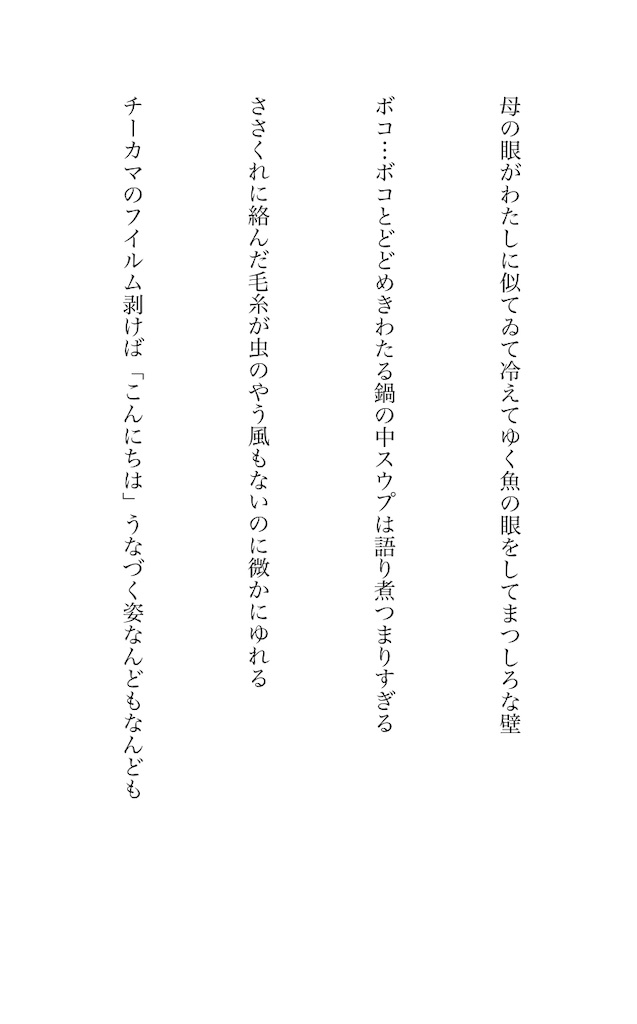 母の眼がわたしに似てゐて冷えてゆく魚の眼をしてまつしろな壁
ボコ…ボコとどどめきわたる鍋の中スウプは語り煮つまりすぎる
ささくれに絡んだ毛糸が虫のやう風もないのに微かにゆれる
チーカマのフイルム剥けば「こんにちは」うなづく姿なんどもなんども